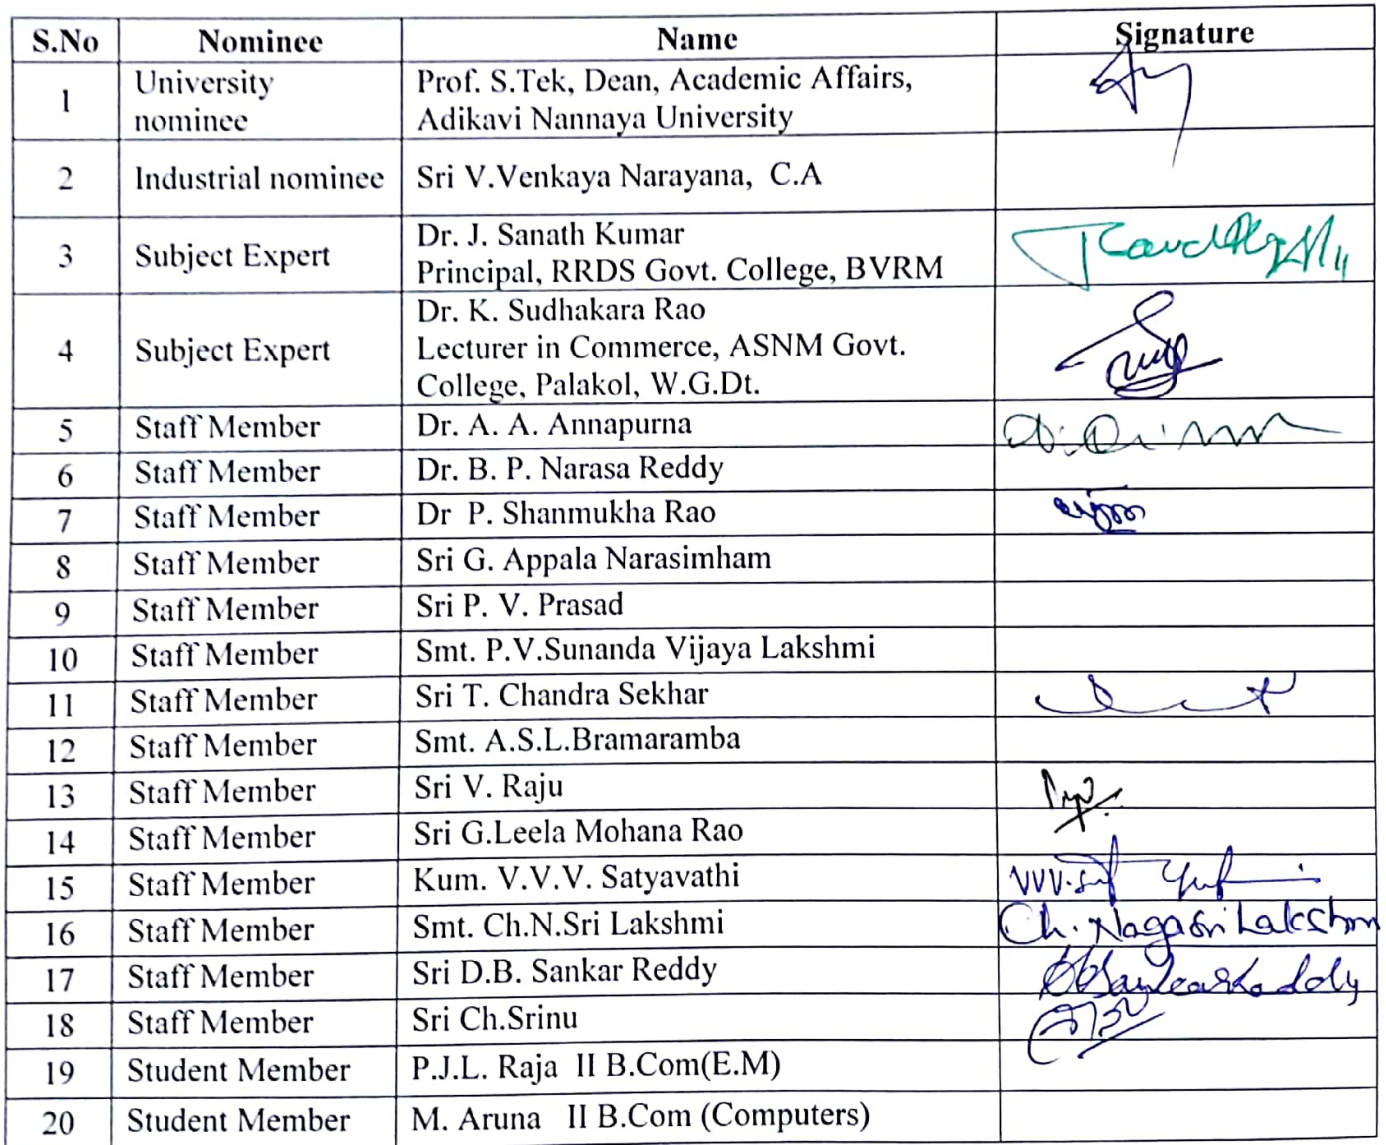 S.No Nominee Name Signature
1 University nominee Prof. S.Tek, Dean, Academic Affairs,
Adikavi Nannaya University
2 Industrial nominee Sri V.Venkaya Narayana, C.A
3 Subject Expert Dr. J. Sanath Kumar
Principal, RRDS Govt. College, BVRM
4 Subject Expert Dr. K. Sudhakara Rao
Lecturer in Commerce, ASNM Govt.
College, Palakol, W.G.Dt.
5 Staff Member Dr. A. A. Annapurna
6 Staff Member Dr. B. P. Narasa Reddy
7 Staff Member Dr P. Shanmukha Rao
8 Staff Member Sri G. Appala Narasimham
9 Staff Member Sri P. V. Prasad
10 Staff Member Smt. P.V.Sunanda Vijaya Lakshmi
11 Staff Member Sri T. Chandra Sekhar
12 Staff Member Smt. A.S.L.Bramaramba
13 Staff Member Sri V. Raju
14 Staff Member Sri G.Leela Mohana Rao
15 Staff Member Kum. V.V.V. Satyavathi
16 Staff Member Smt. Ch.N.Sri Lakshmi Ch. Nagasri Lakshm
17 Staff Member Sri D.B. Sankar Reddy
18 Staff Member Sri Ch.Srinu
19 Student Member P.J.L. Raja II B.Com(E.M)
20 Student Member M. Aruna II B.Com (Computers)